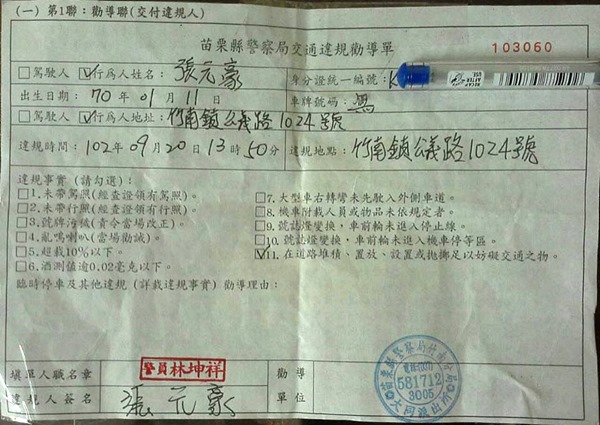 (一) 第1聯：勸導聯(交付違規人)
苗栗縣警察局交通違規勸導單
103060
□駕駛人 ☑行為人姓名：張元豪 身分證統一編號：K
出生日期：70年01月11日 車牌號碼：無
□駕駛人 ☑行為人地址：竹南鎮公義路1024號
違規時間：102年09月20日13時50分 違規地點：竹南鎮公義路1024號
違規事實 (請勾選)：
□1.未帶駕照(經查證領有駕照)。
□2.未帶行照(經查證領有行照)。
□3.號牌污穢(責令當場改正)。
□4.亂鳴喇叭(當場勸誡)。
□5.超載10%以下。
□6.酒測值逾0.02毫克以下。
□7.大型車右轉彎未先駛入外側車道。
□8.機車附載人員或物品未依規定者。
□9.號誌燈變換，車前輪未進入停止線。
□10.號誌燈變換，車前輪未進入機車停等區。
☑11.在道路堆積、置放、設置或拋擲足以妨礙交通之物。
臨時停車及其他違規(詳載違規事實)勸導理由：
填單人職名章 警員林坤祥
違規人簽名 張元豪
勸導單位
苗栗縣警察局竹南分局
581712
3005
大同派出所